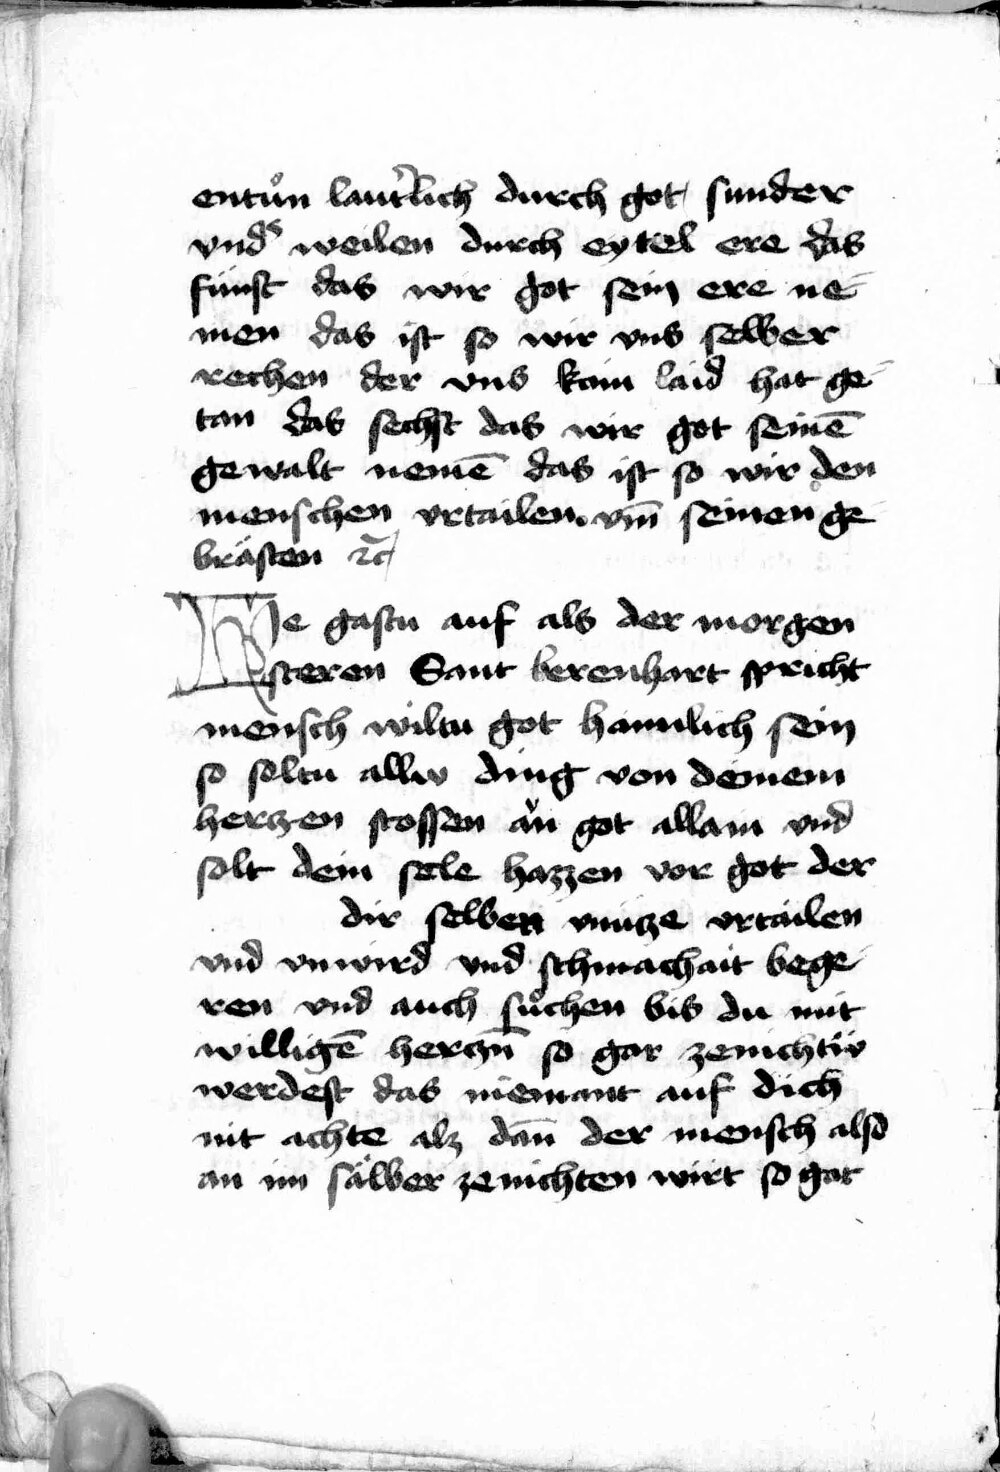 entuͦn laut'lich durch got sunder
vnd's weilen durch eytel ere das
fünft das wir got sein ere ne-
men das ist so wir vns selber
rechen der vns kain laid hat ge-
tan das sechst das wir got seinē
gewalt nemē das ist so wir den
menschen vrtailen vm̄ seinen ge
brästen ꝛc̄
e gastu auf als der morgen
steren Sant berenhart spricht
mensch wiltu got haimlich sein
so soltu alliv ding von deinem
hertzen stossen än got allain vnd
solt dein sele hazzen vor got der
dir selben vnütze vrtailen
vnd vnwird vnd schmachait bege-
ren vnd auch suͦchen bis du mit
willigē hertzn̄ so gar zenichtiv
werdest das niemant auf dich
nit achte alz dan̄ der mensch also
an im sälber zenichten wirt so gat